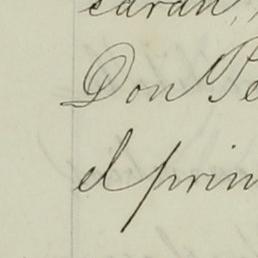 saran,
Don Pe
el prin